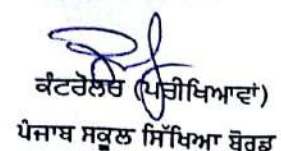 ਕੰਟਰੋਲਰ (ਪਰੀਖਿਆਵਾਂ)
ਪੰਜਾਬ ਸਕੂਲ ਸਿੱਖਿਆ ਬੋਰਡ